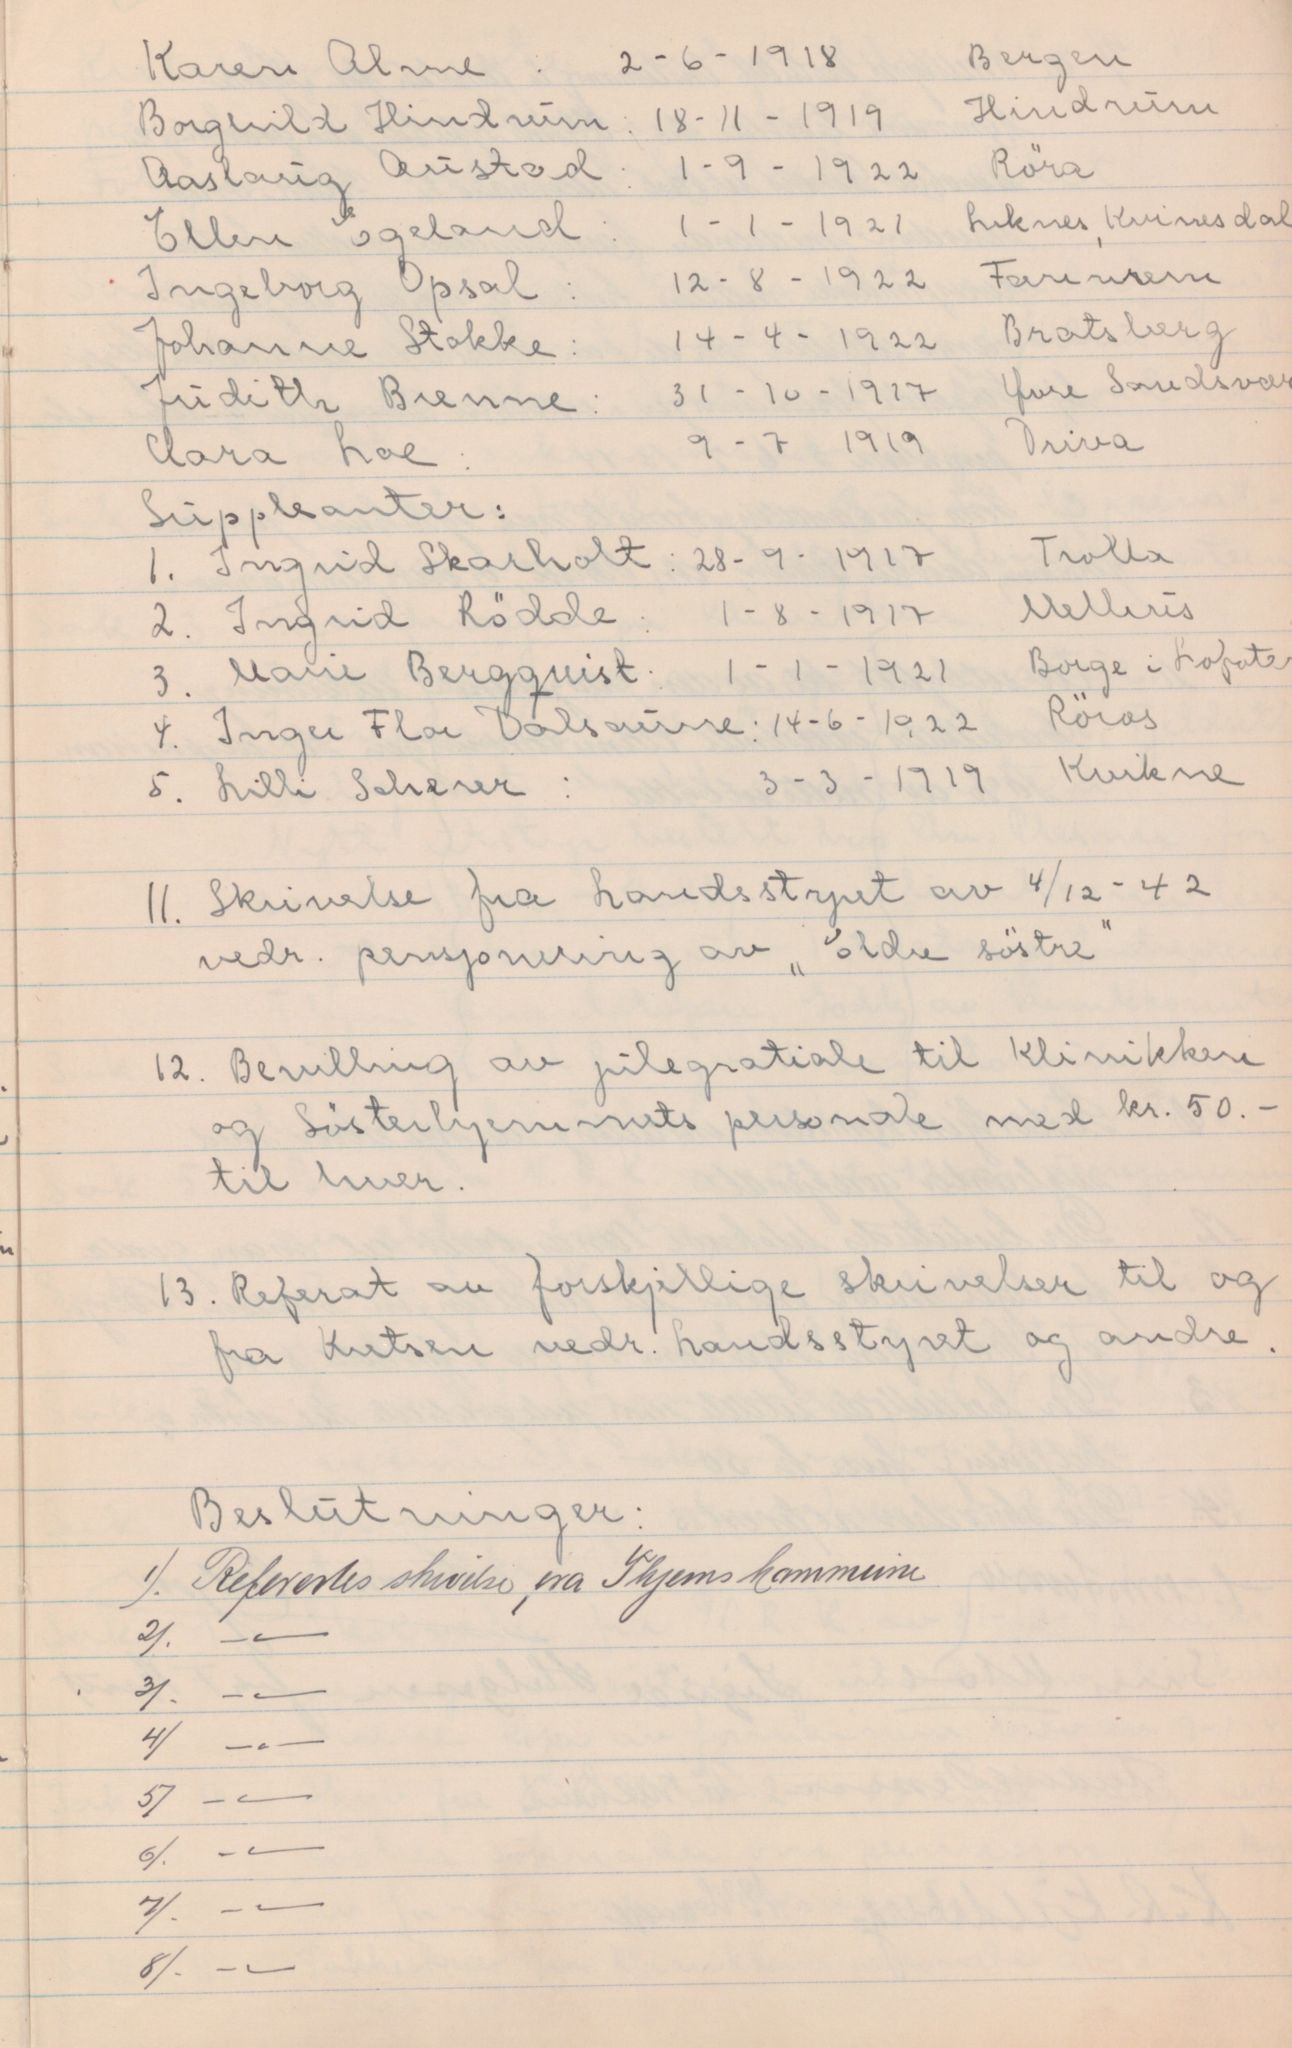 Karen Alme : 2-6-1918 Bergen
Borghild Hindrum: 18-11-1919 Hindrum
Aaslaug Austad : 1-9-1922 Röra
Ellen Egeland : 1-1-1921 Liknes, Kvinesdal
Ingeborg Opsal : 12-8-1922 Fannrem
Johanne Stokke: 14-4-1922 Bratsberg
Judith Brenne: 31-10-1917 Øvre Sandsvær
Clara Loe : 9-7 1919 Driva
Suppleanter:
1. Ingrid Skarholt: 28-9-1917 Trolla
2. Ingrid Rödde : 1-8-1917 Melhus
3. Marie Bergquist: 1-1-1921 Borge i Lofoten
4. Inger Flor Valsaune: 14-6-1922 Röros
5. Lilli Schever : 3-3-1919 Kvikne
11. Skrivelse fra Landsstyret av 4/12-42
vedr. pensjonering av „eldre söstre"
12. Bevilling av julegratiale til Klinikken
og Sösterhjemmets personale med kr. 50.-
til hver.
13. Referat av forskjellige skrivelser til og
fra Kretsen vedr. Landsstyret og andre.
Beslutninger:
1). Referertes skrivelse fra kommune
2/. -"-
3/. -"-
4/ -"-
5/ -"-
6/. -"-
7/. -"-
8/. -"-